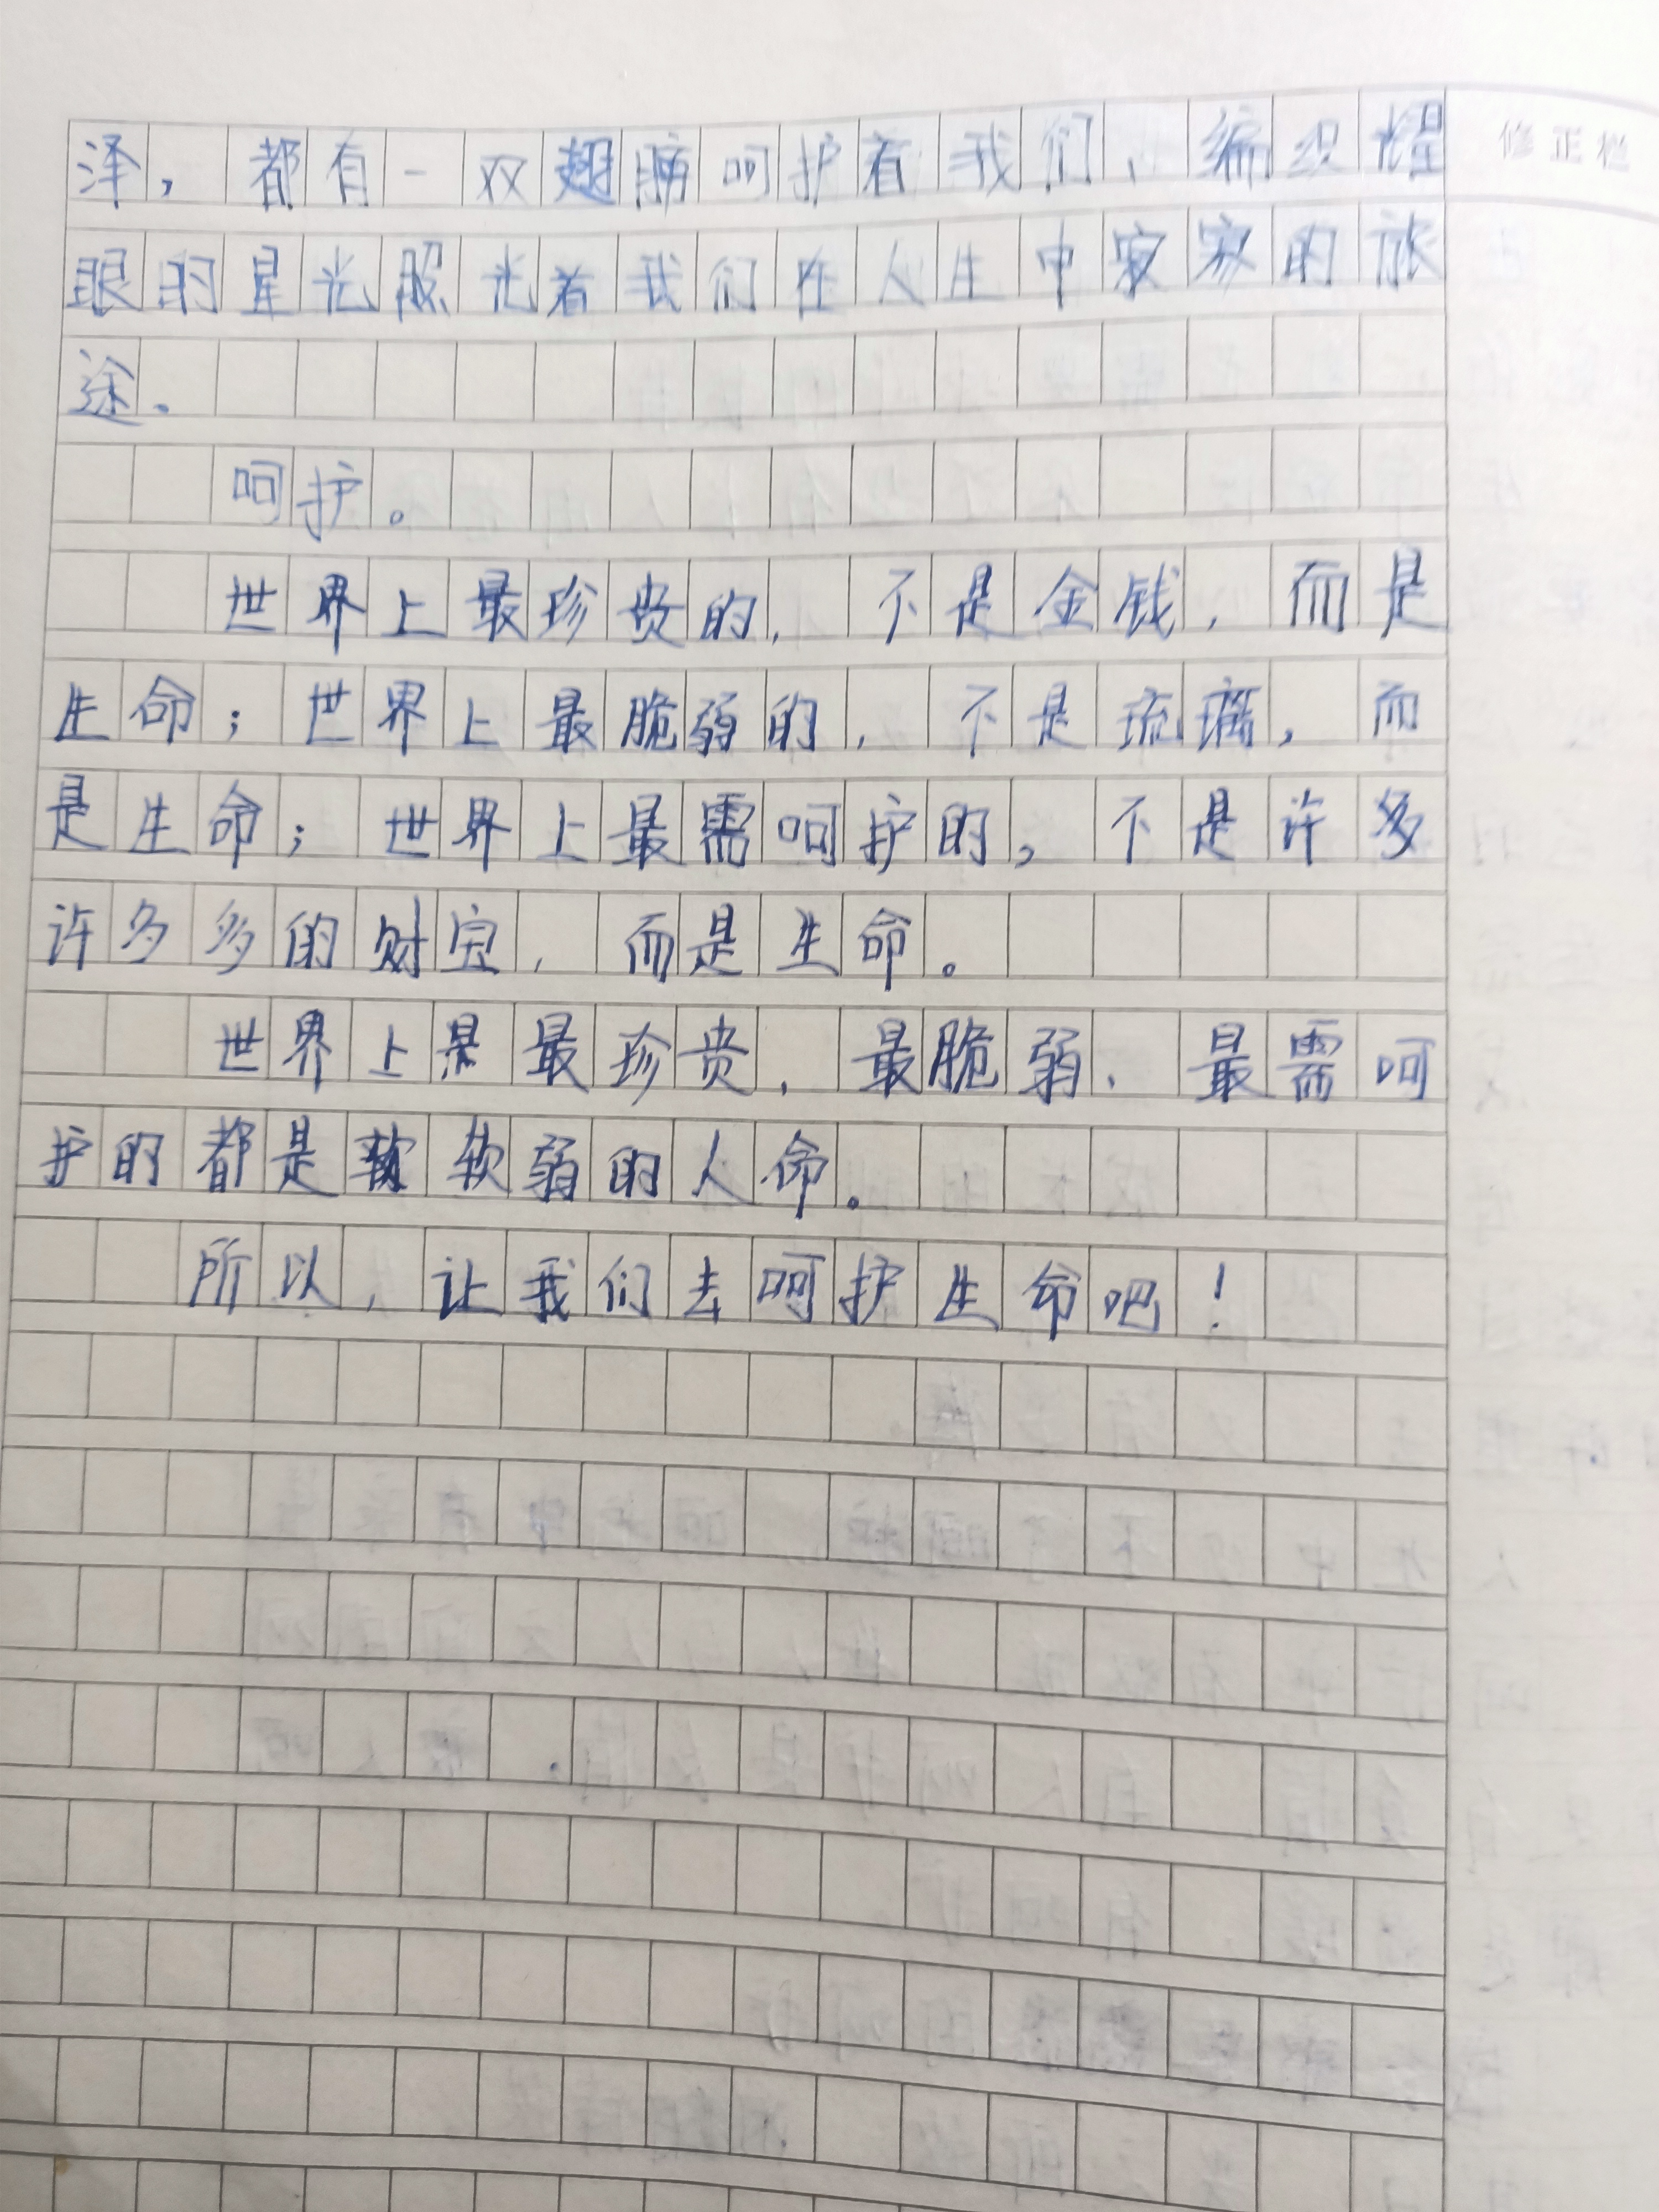 修正栏
泽，都有一双翅膀呵护着我们，编织耀
眼的星光照光着我们在人生中寂寞的旅
途。
呵护。
世界上最珍贵的，不是金钱，而是
生命；世界上最脆弱的，不是琉璃，而
是生命；世界上最需呵护的，不是许多
许多多的财宝，而是生命。
世界上是最珍贵，最脆弱、最需呵
护的都是软软弱的人命。
所以，让我们去呵护生命吧！